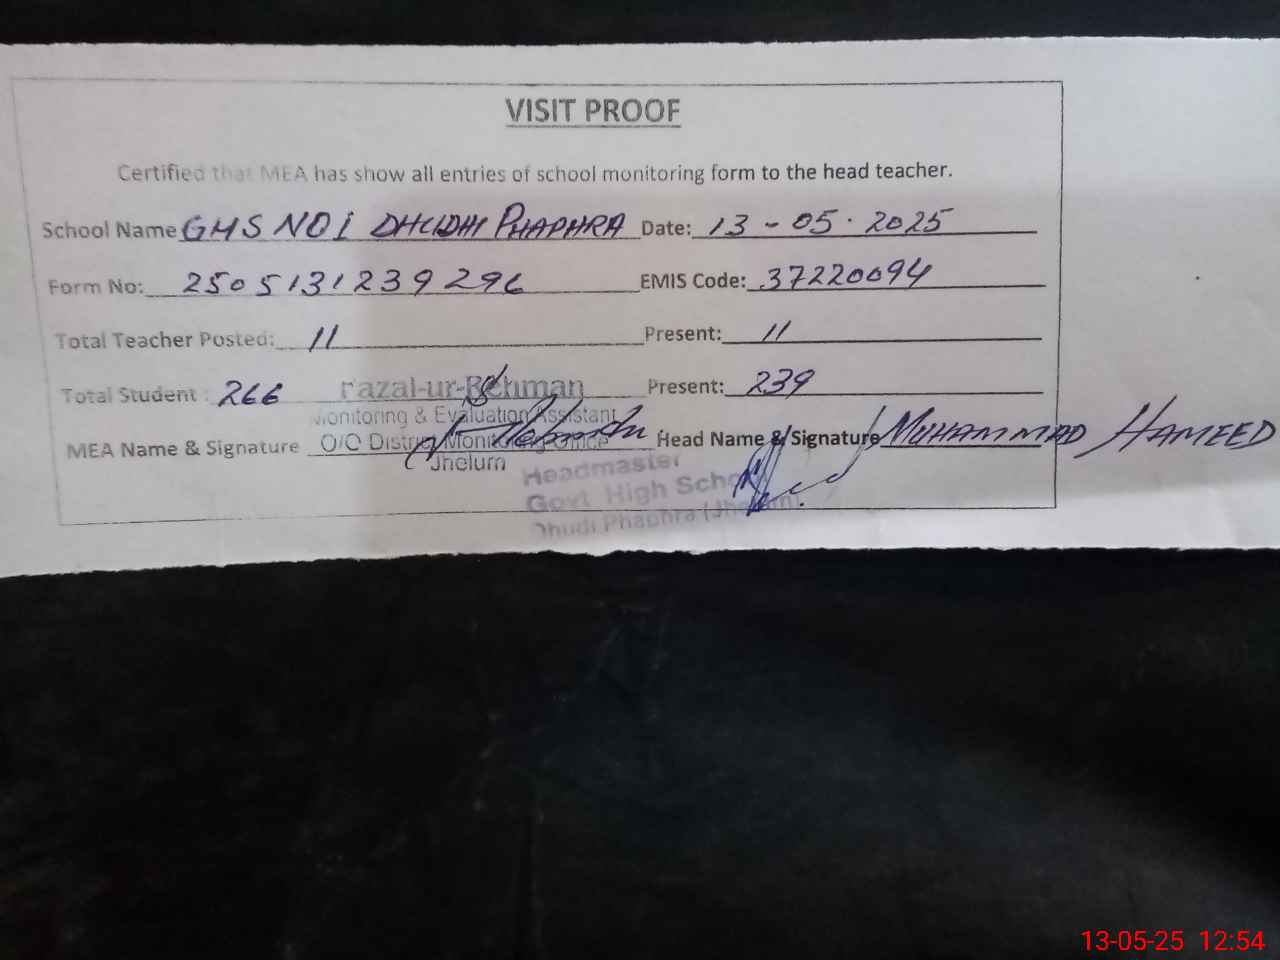 VISIT PROOF
Certified that MEA has show all entries of school monitoring form to the head teacher.
School Name GHS NO 1 DHUDHI PHAPHRA Date: 13 - 05 - 2025
Form No: 2505131239296 EMIS Code: 37220094
Total Teacher Posted: 11 Present: 11
Total Student : 266 Present: 239
Fazal-ur-Rehman
Monitoring & Evaluation Assistant
O/O District Monitoring Office
Jhelum
MEA Name & Signature Head Name & Signature MUHAMMAD HAMEED
Headmaster
Govt. High School
Dhudi Phaphra (Jhelum)
13-05-25 12:54